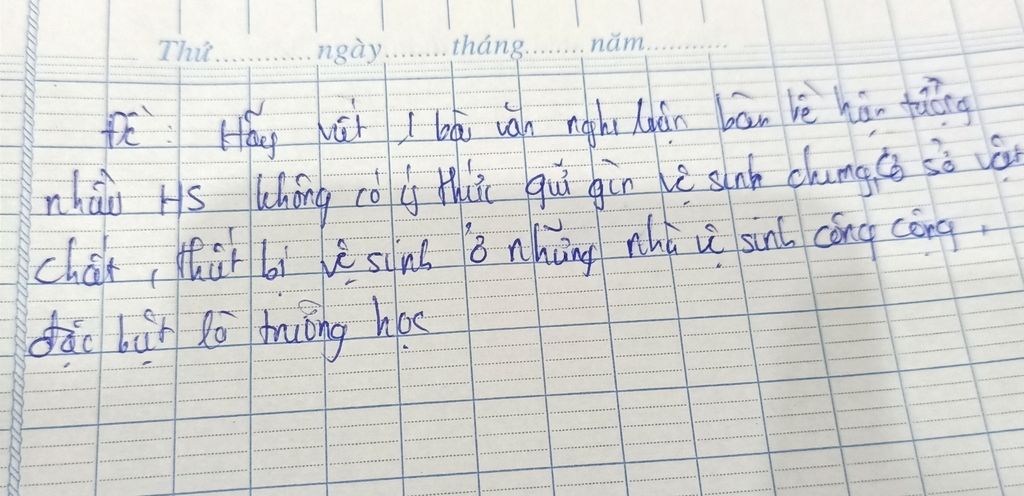 Thứ............ngày........tháng........năm............
Đề: Hãy viết 1 bài văn nghị luận bàn về hiện tượng
nhiều HS không có ý thức giữ gìn vệ sinh chung, cơ sở vật
chất, thiết bị vệ sinh ở những nhà vệ sinh công cộng,
đặc biệt là trường học